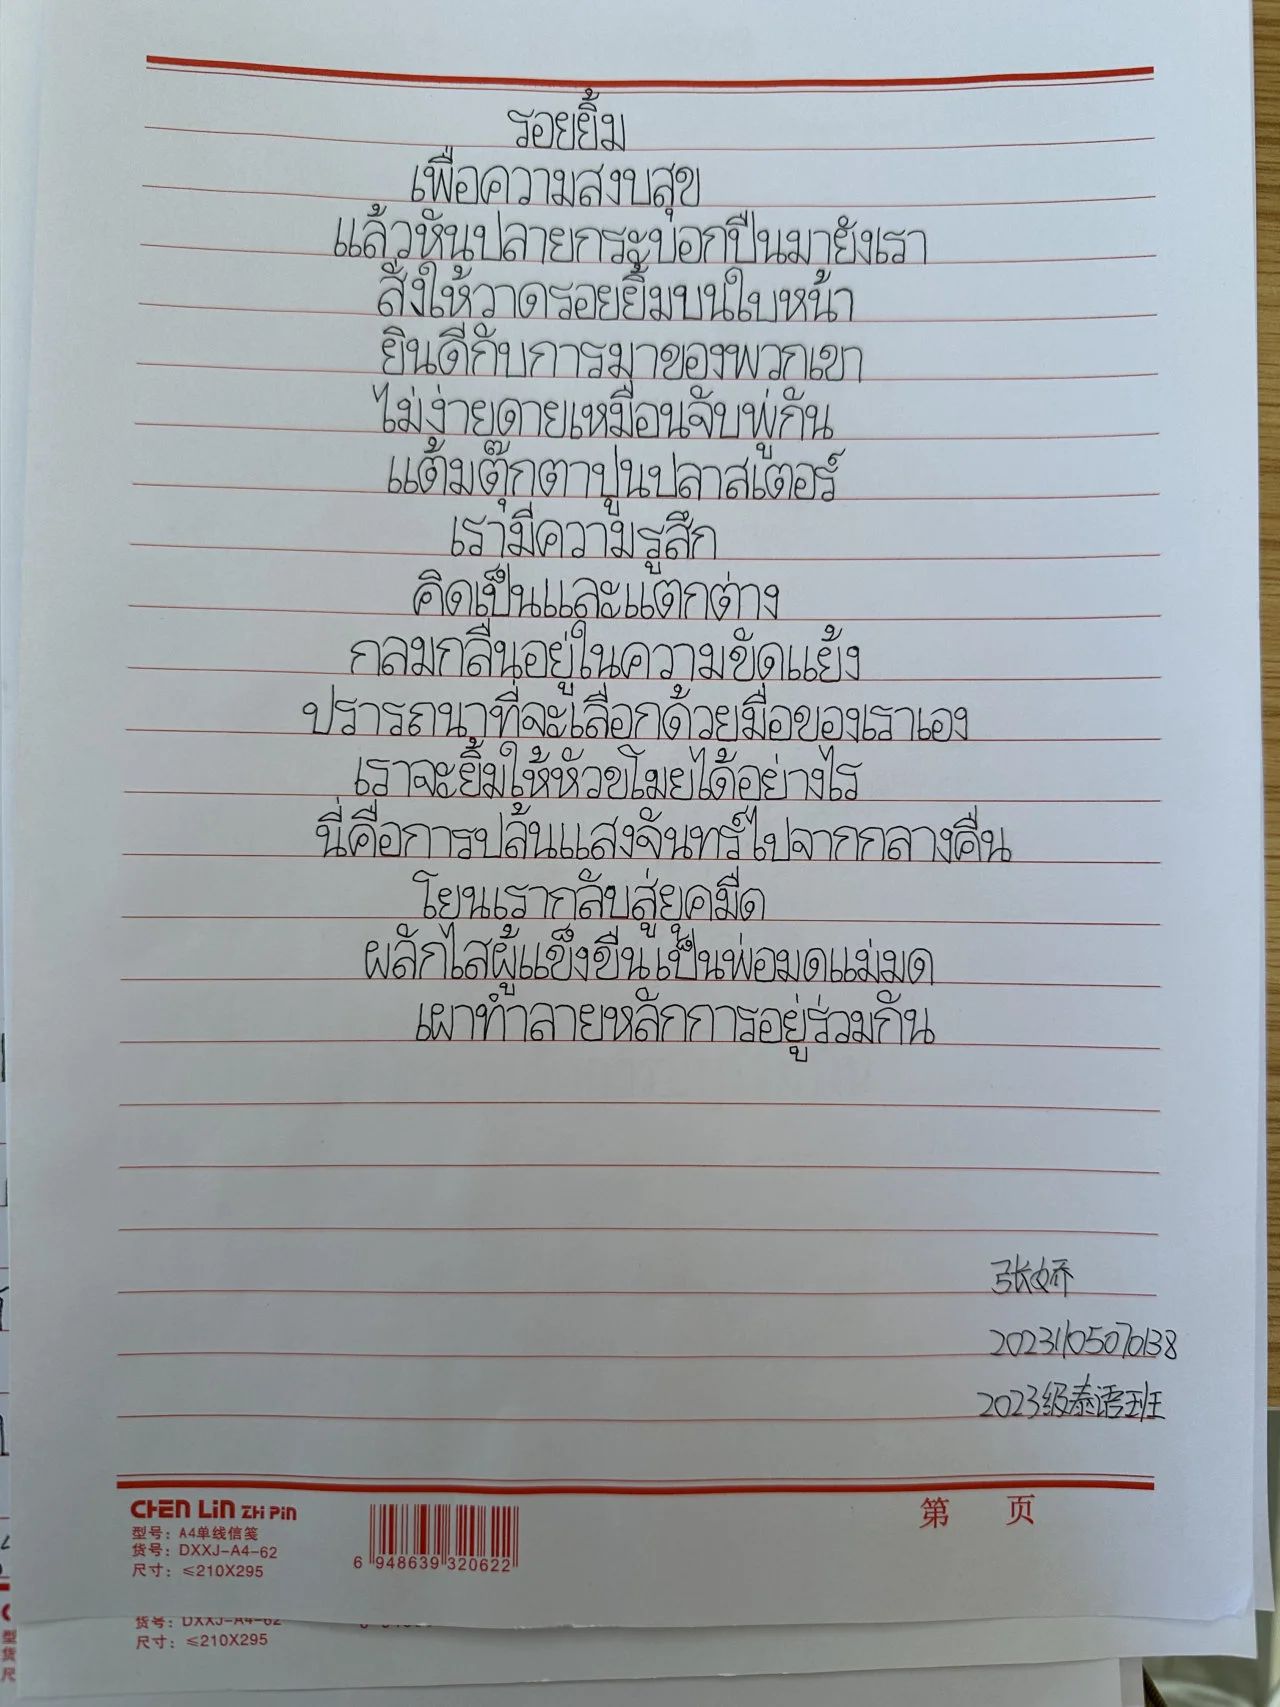 รอยยิ้ม
เพื่อความสงบสุข
แล้วหันปลายกระบอกปืนมายังเรา
สั่งให้วาดรอยยิ้มบนใบหน้า
ยินดีกับการมาของพวกเขา
ไม่ง่ายดายเหมือนจับพู่กัน
แต้มตุ๊กตาปูนปลาสเตอร์
เรามีความรู้สึก
คิดเป็นและแตกต่าง
กลมกลืนอยู่ในความขัดแย้ง
ปรารถนาที่จะเลือกด้วยมือของเราเอง
เราจะยิ้มให้หัวขโมยได้อย่างไร
นี่คือการปล้นแสงจันทร์ไปจากกลางคืน
โยนเรากลับสู่ยุคมืด
ผลักไสผู้แข็งขืนเป็นพ่อมดแม่มด
เผาทำลายหลักการอยู่ร่วมกัน
张娇
20231105070138
2023级泰语班
CHEN LIN ZHI PIN
型号：A4单线信笺
货号：DXXJ-A4-62
尺寸：≤210X295
6 948639 320622
第 页
货号：DXXJ-A4-62
尺寸：≤210X295